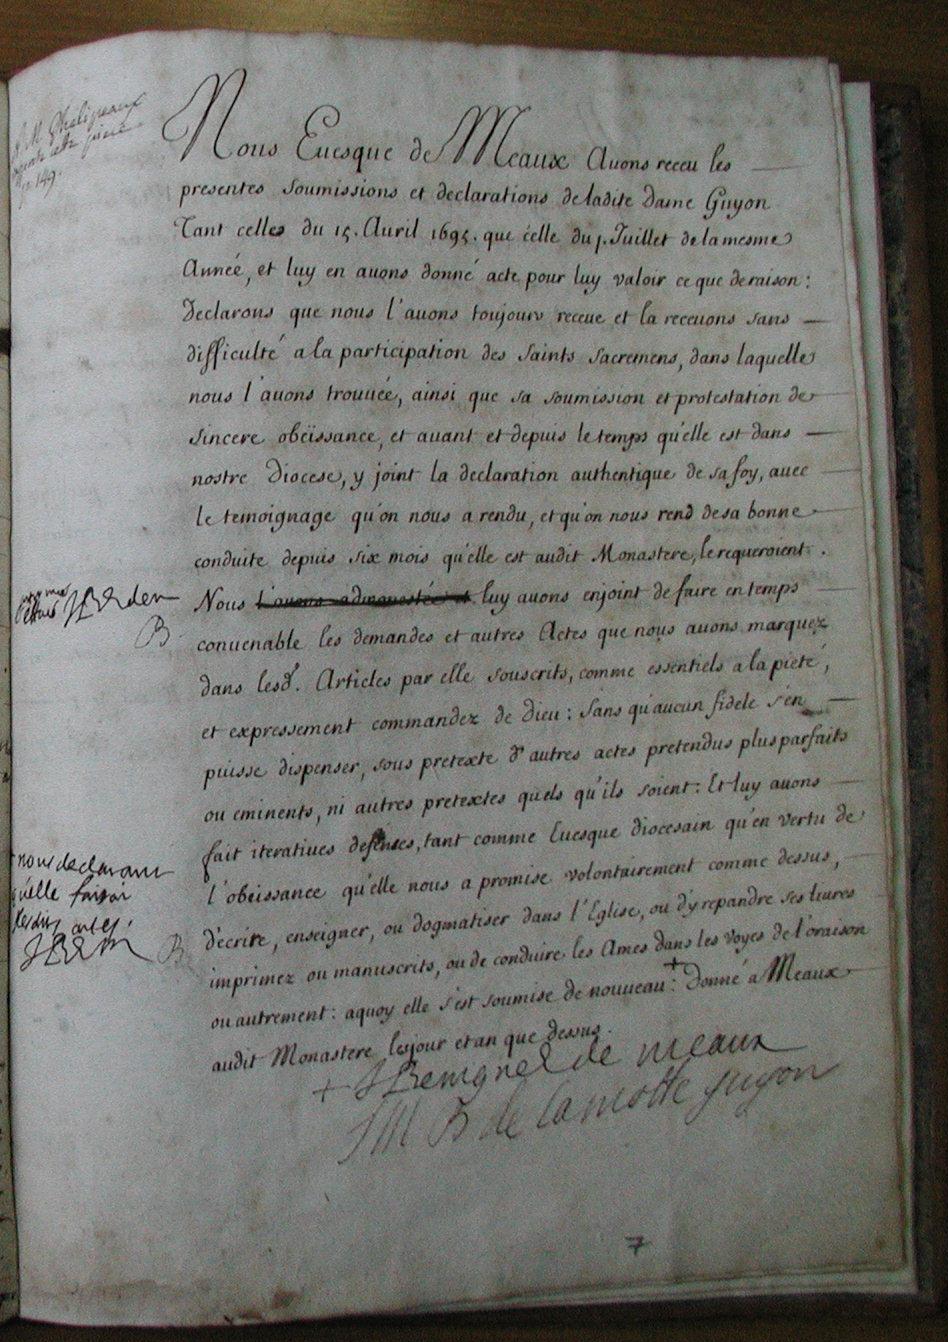 p. 149.
Nous Euesque de Meaux Auons receu les
presentes soumissions et declarations de ladite Dame Guyon
Tant celles du 15. Auril 1695. que celle du j. Juillet de la mesme
Année, et luy en auons donné acte pour luy valoir ce que de raison:
Declarons que nous l'auons toujours receue et la receuons sans
difficulté a la participation des saints sacremens, dans laquelle
nous l'auons trouuée, ainsi que sa soumission et protestation de
sincere obeïssance, et auant et depuis le temps qu'elle est dans
nostre Diocese, y joint la declaration authentique de sa foy, auec
le temoignage qu'on nous a rendu, et qu'on nous rend de sa bonne
conduite depuis six mois qu'elle est audit Monastere, le requeroient.
Nous luy auons enjoint de faire en temps
B
conuenable les demandes et autres Actes que nous auons marquez
dans lesd. Articles par elle souscrits, comme essentiels a la pieté,
et expressement commandez de Dieu: sans qu'aucun fidele s'en
puisse dispenser, sous pretexte d'autres actes pretendus plus parfaits
ou eminents, ni autres pretextes quels qu'ils soient: Et luy auons
fait iteratiues defenses, tant comme Euesque diocesain qu'en vertu de
l'obeissance qu'elle nous a promise volontairement comme dessus,
nous declarant
qu'elle faisoi
d'écrire, enseigner, ou dogmatiser dans l'Eglise, ou d'y repandre ses liures
B
imprimez ou manuscrits, ou de conduire les Ames dans les voyes de l'oraison
ou autrement: a quoy elle s'est soumise de nouueau + : Donné a Meaux
audit Monastere les jour et an que dessus.
+ J Benigne E. de meaux
J M B de la motte guyon
7